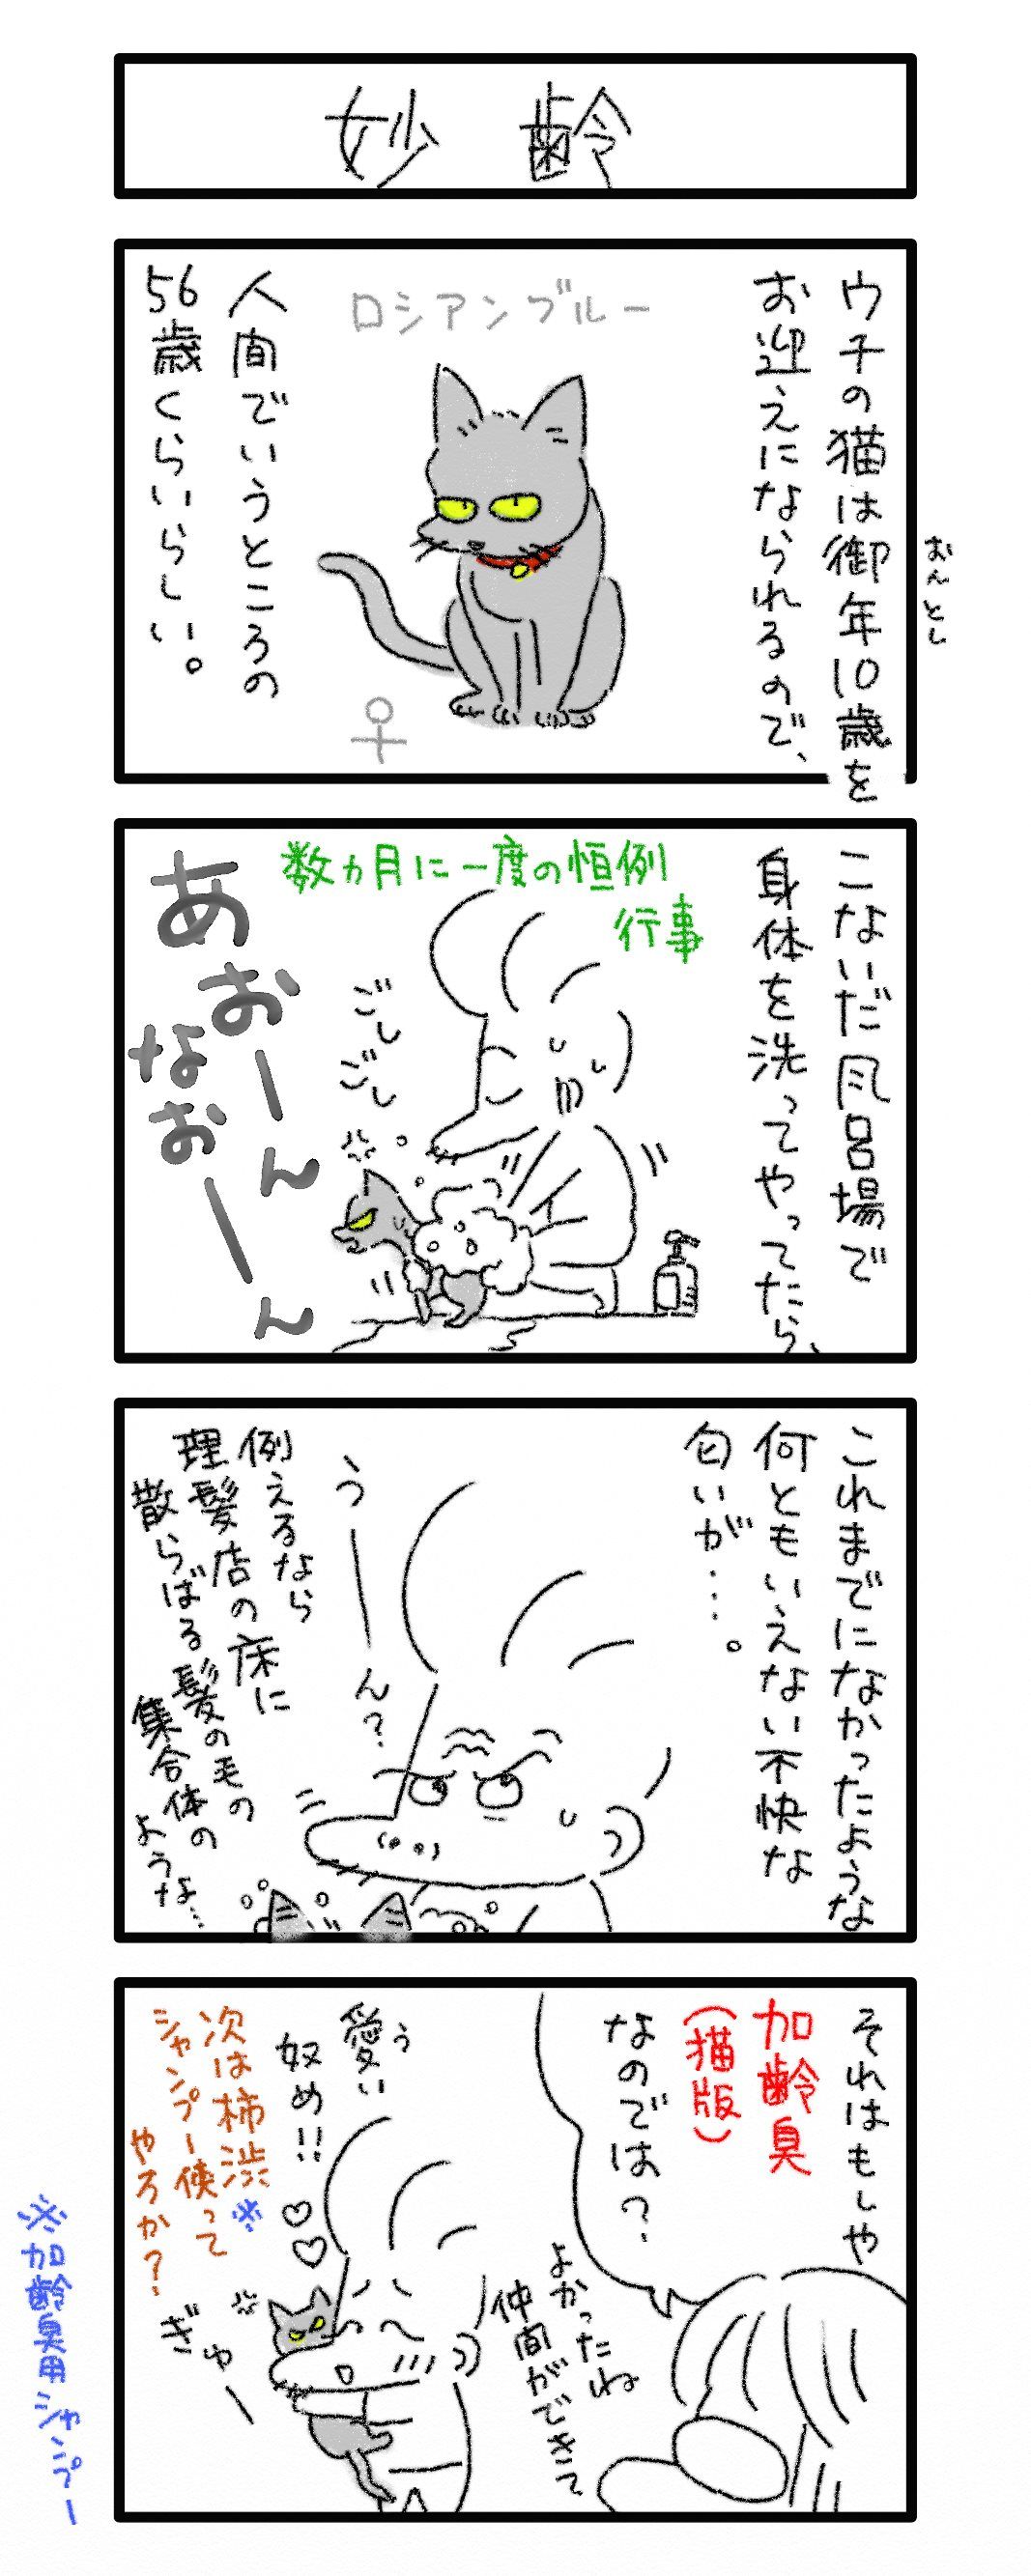 妙齢
ウチの猫は御年10歳を
おんとし
お迎えになられるので、
ロシアンブルー
♀
人間でいうところの
56歳くらいらしい。
こないだ風呂場で
身体を洗ってやってたら、
数ヵ月に一度の恒例
行事
ごし
ごし
あおーん
なおーん
これまでになかったような
何ともいえない不快な
匂いが…。
うーん?
例えるなら
理髪店の床に
散らばる髪の毛の
集合体の
ような…
それはもしや
加齢臭
(猫版)
なのでは?
よかったね
仲間ができて
う
愛い
奴め!!
♡♡
次は柿渋※
シャンプー使って
やろか?
ぎゅー
※加齢臭用シャンプー